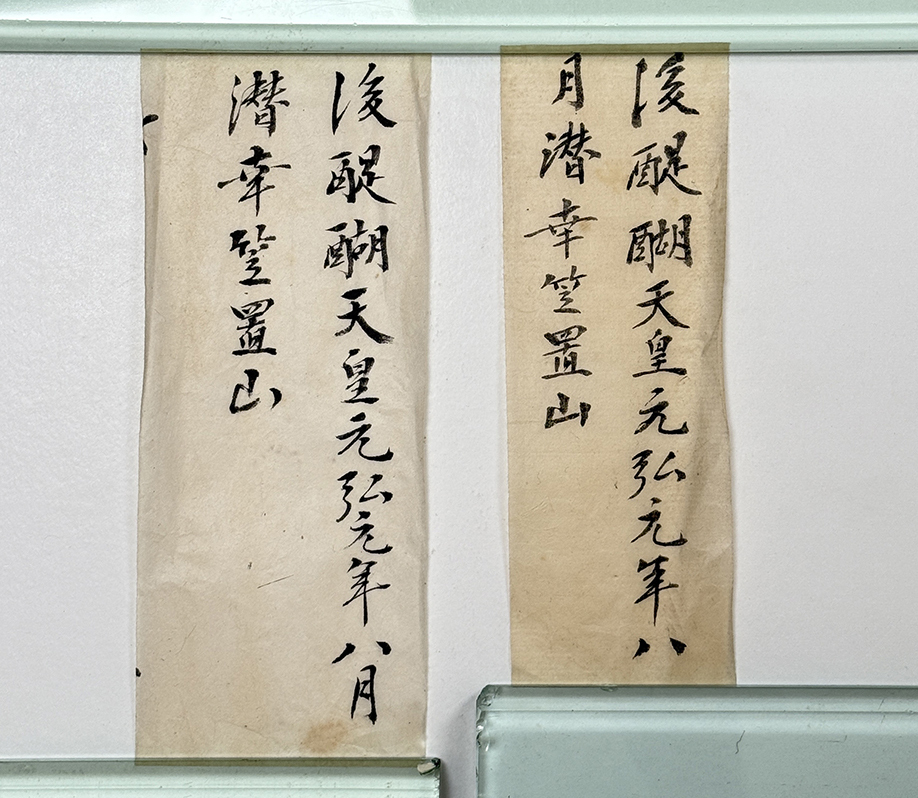 後醍醐天皇元弘元年八
月潜幸笠置山
後醍醐天皇元弘元年八月
潜幸笠置山